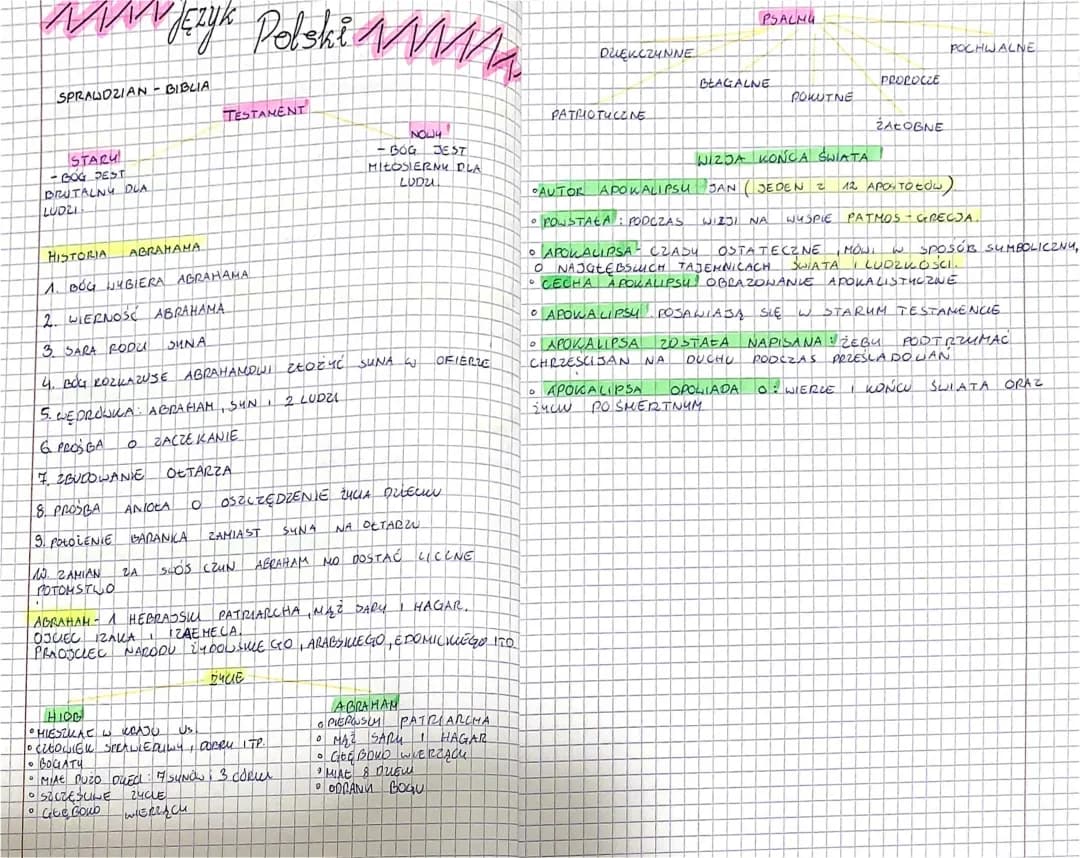 JĘZYK Polski
SPRAWDZIAN - BIBLIA
TESTAMENT
STARY
- BÓG JEST
BRUTALNY DLA
LUDZI.
NOWY
- BÓG JEST
MIŁOSIERNY DLA
LUDZI.
HISTORIA ABRAHAMA
1. BÓG WYBIERA ABRAHAMA
2. WIERNOŚĆ ABRAHAMA
3. SARA RODZI SYNA
4. BÓG ROZKAZUJE ABRAHAMOWI ZŁOŻYĆ SYNA W OFIERZE
5. WĘDRÓWKA: ABRAHAM, SYN I 2 LUDZI
6. PROŚBA O ZACZEKANIE
7. ZBUDOWANIE OŁTARZA
8. PROŚBA ANIOŁA O OSZCZĘDZENIE ŻYCIA DZIECKU
9. POŁOŻENIE BARANKA ZAMIAST SYNA NA OŁTARZU
10. ZAMIAN ZA SWÓJ CZYN ABRAHAM MO DOSTAĆ LICZNE
POTOMSTWO
ABRAHAM - 1 HEBRAJSKI PATRIARCHA, MĄŻ SARY I HAGAR.
OJCIEC IZAKA I IZAEMELA.
PRAOJCIEC NARODU ŻYDOWSKIEGO, ARABSKIEGO, EDOMICKIEGO ITD.
ŻYCIE
HIOB
• MIESZKAŁ W KRAJU US.
• CZŁOWIEK SPRAWIEDLIWY, DOBRY ITP.
• BOGATY
• MIAŁ DUŻO DZIECI: 7 SYNÓW I 3 CÓRKI
• SZCZĘŚLIWE ŻYCIE
• GŁĘBOKO WIERZĄCY
ABRAHAM
• PIERWSZY PATRIARCHA
• MĄŻ SARY I HAGAR
• GŁĘBOKO WIERZĄCY
• MIAŁ 8 DZIECI
• ODDANY BOGU
PSALMY
DZIĘKCZYNNE
POCHWALNE
BŁAGALNE
PROROCZE
POKUTNE
PATRIOTYCZNE
ŻAŁOBNE
WIZJA KOŃCA ŚWIATA
• AUTOR APOKALIPSY: JAN (JEDEN Z 12 APOSTOŁÓW)
• POWSTAŁA: PODCZAS WIZJI NA WYSPIE PATMOS - GRECJA.
• APOKALIPSA - CZASY OSTATECZNE, MÓWI W SPOSÓB SYMBOLICZNY,
O NAJGŁĘBSZYCH TAJEMNICACH ŚWIATA I LUDZKOŚCI.
• CECHA APOKALIPSY: OBRAZOWANIE APOKALISTYCZNE
• APOKALIPSY: POJAWIAJĄ SIĘ W STARYM TESTAMENCIE
• APOKALIPSA ZOSTAŁA NAPISANA: ŻEBY PODTRZYMAĆ
CHRZEŚCIJAN NA DUCHU PODCZAS PRZEŚLADOWAŃ
• APOKALIPSA OPOWIADA O: WIERZE I KOŃCU ŚWIATA ORAZ
ŻYCIU POŚMIERTNYM